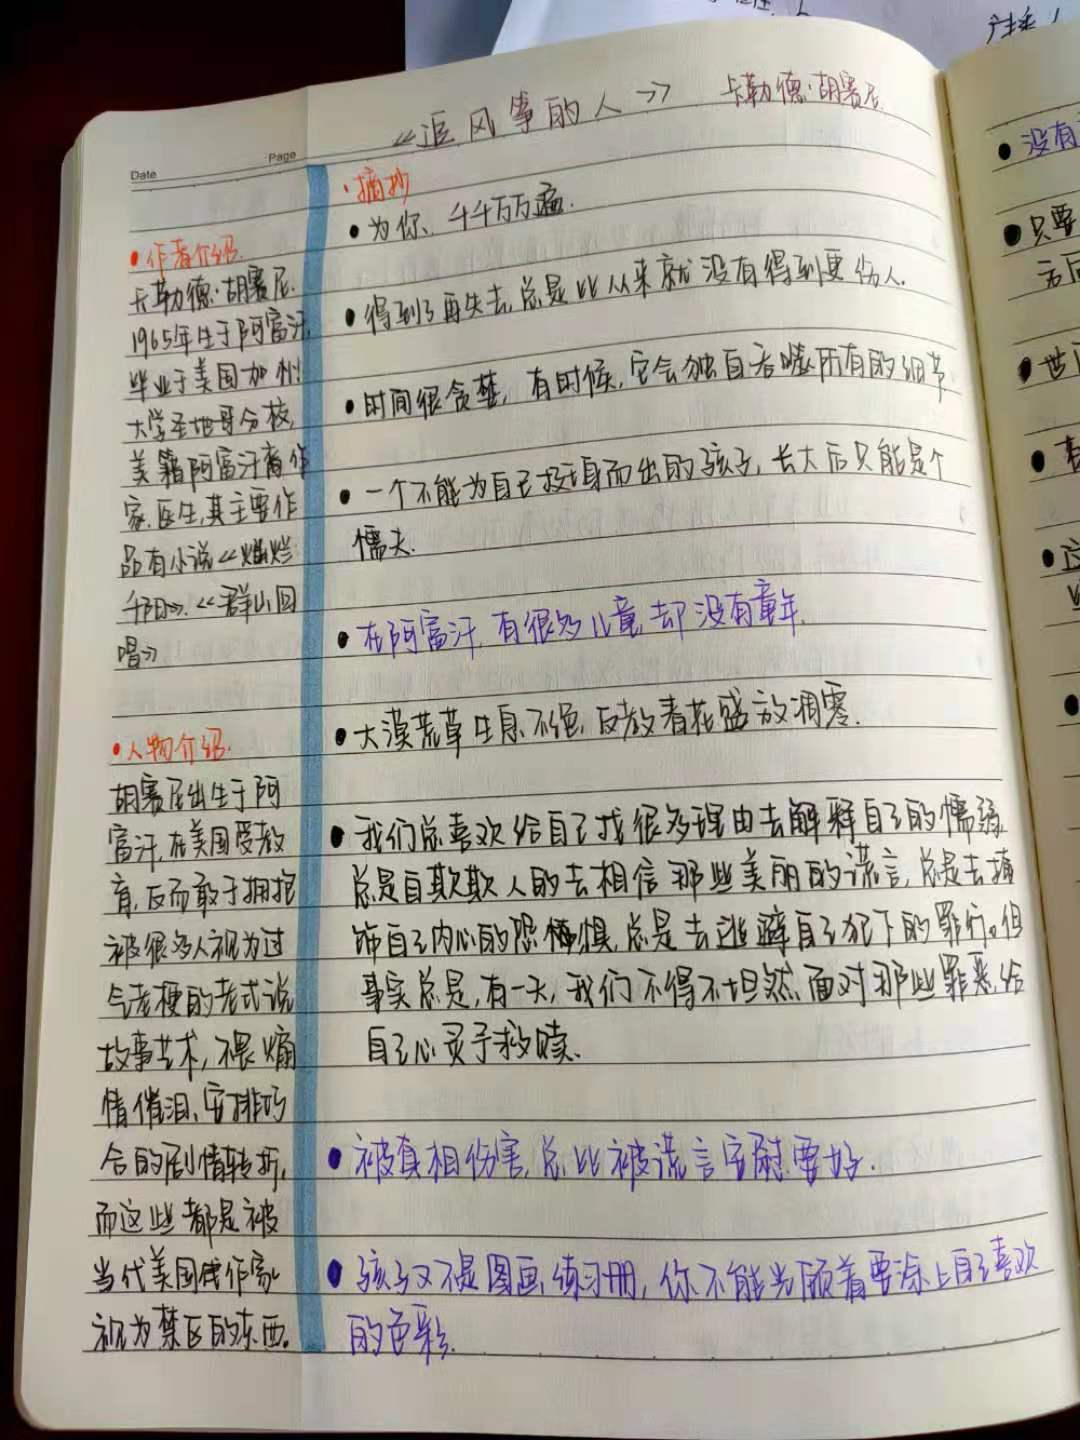 《追风筝的人》 卡勒德·胡赛尼
Date Page
·摘抄
●为你、千千万万遍.
●得到了再失去,总是比从来就没有得到更伤人.
●时间很贪婪,有时候,它会独自吞噬所有的细节
●一个不能为自己挺身而出的孩子,长大后只能是个
懦夫.
●在阿富汗,有很多儿童,却没有童年.
●大漠荒草生息不绝,反教春花盛放凋零.
●我们总喜欢给自己找很多理由去解释自己的懦弱,
总是自欺欺人的去相信那些美丽的谎言,总是去掩
饰自己内心的恐惧,总是去逃避自己犯下的罪行。但
事实总是,有一天,我们不得不坦然面对那些罪恶,给
自己心灵予救赎.
●被真相伤害,总比被谎言安慰要好.
●孩子又不是图画练习册,你不能光顾着要涂上自己喜欢
的色彩.
●作者介绍.
卡勒德·胡赛尼.
1965年生于阿富汗,
毕业于美国加州
大学圣地哥分校,
美籍阿富汗裔作
家.医生,其主要作
品有小说《灿烂
千阳》.《群山回
唱》
●人物介绍.
胡赛尼出生于阿
富汗,在美国受教
育,反而敢于拥抱
被很多人视为过
气老梗的老式说
故事艺术,不畏煽
情催泪、安排巧
合的剧情转折,
而这些都是被
当代美国作家
视为禁区的东西.
●没有
●只要
●世